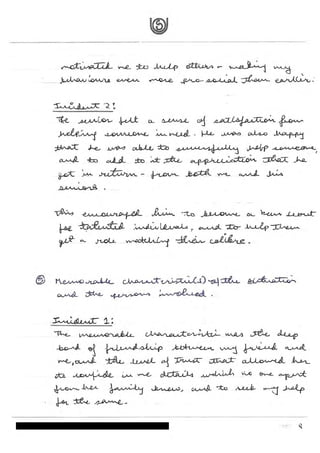 5
motivated me to help others - making my
behaviours even more pro-social than earlier.
Incident 2:
The senior felt a sense of satisfaction from
helping someone in need. He was also happy
that he was able to successfully help someone,
and to add to it the appreciation that he
got in return - from both me and his
seniors.
This encouraged him to become a keen scout
for talented individuals, and to help them
get a role matching their calibre.
5 Memorable characteristic(s) of the situation
and the persons involved.
Incident 1:
The memorable characteristic was the deep
bond of friendship between my friend and
me, and the level of trust that allowed her
to confide in me details which no one apart
from her family knew, and to seek my help
for the same.